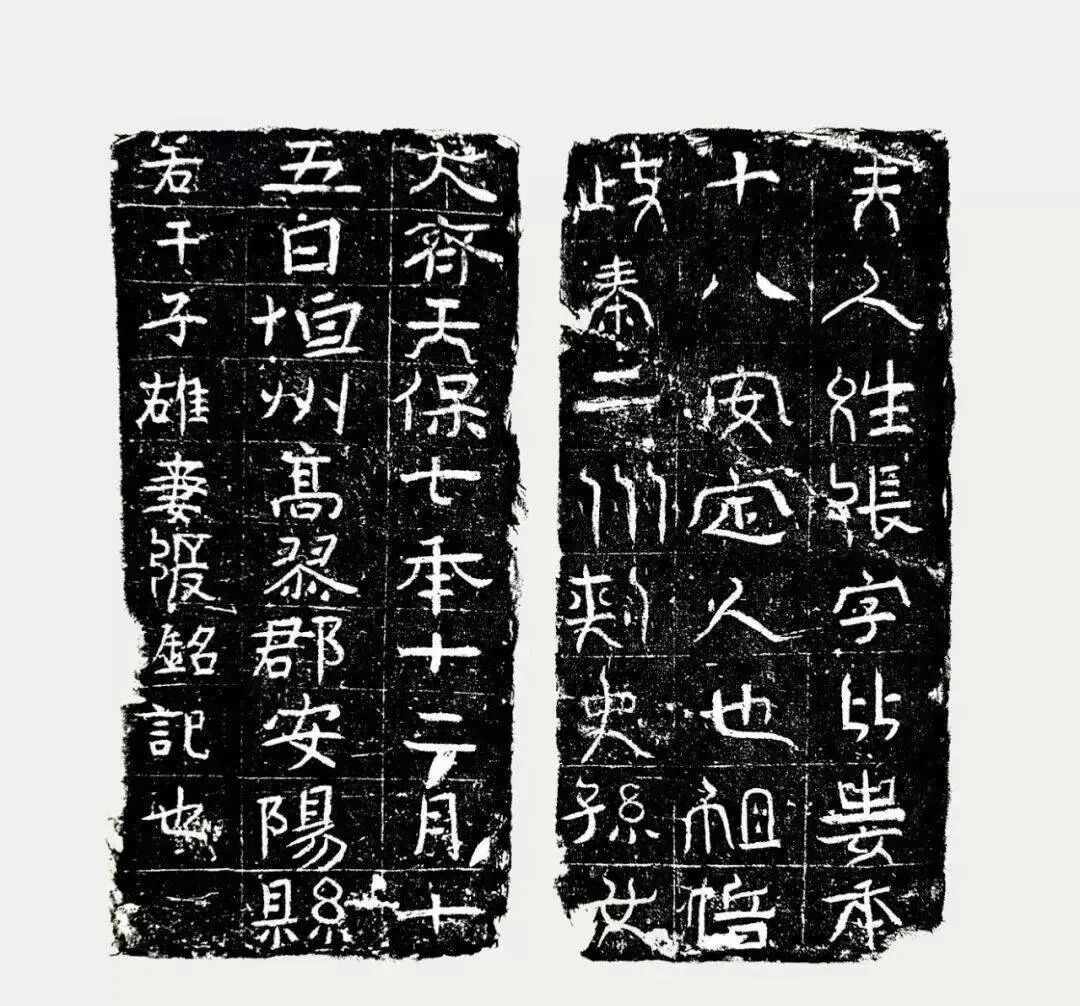 夫人姓張字比婁年
十八安定人也祖愔
岐秦二州刺史孫女
大齊天保七年十二月十
五日恒州高郡安陽縣
若干子雄妻張銘記也